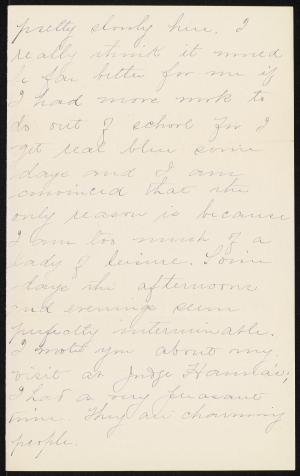 pretty slowly here. I
really think it would
be far better for me if
I had more work to
do out of school for I
get real blue some
days and I am
convinced that the
only reason is because
I am too much of a
lady of leisure. Some
days the afternoons
and evenings seem
perfectly interminable.
I wrote you about my
visit at Judge Hanna's;
I had a very pleasant
time. They are charming
people.